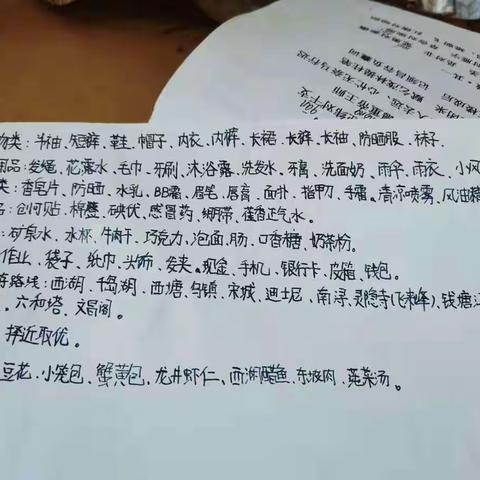 物类：半袖、短裤、鞋、帽子、内衣、内裤、长裙、长裤、长袖、防晒服、袜子、
用品：发绳、花露水、毛巾、牙刷、沐浴露、洗发水、牙膏、洗面奶、雨伞、雨衣、小风
类：香皂片、防晒、水乳、BB霜、眉笔、唇膏、面扑、指甲刀、手霜。清凉喷雾、风油精
品：创可贴、棉签、碘伏、感冒药、绷带、藿香正气水。
：矿泉水、水杯、牛肉干、巧克力、泡面、肠、口香糖、奶茶粉。
作业、袋子、纸巾、头饰、发夹。现金、手机、银行卡、皮箱、钱包。
路线：西湖、千岛湖、西塘、乌镇、宋城、迪士尼、南浔、灵隐寺(飞来峰)、钱塘江
、六和塔、文昌阁。
择近取优。
豆花、小笼包、蟹黄包、龙井虾仁、西湖醋鱼、东坡肉、莼菜汤。